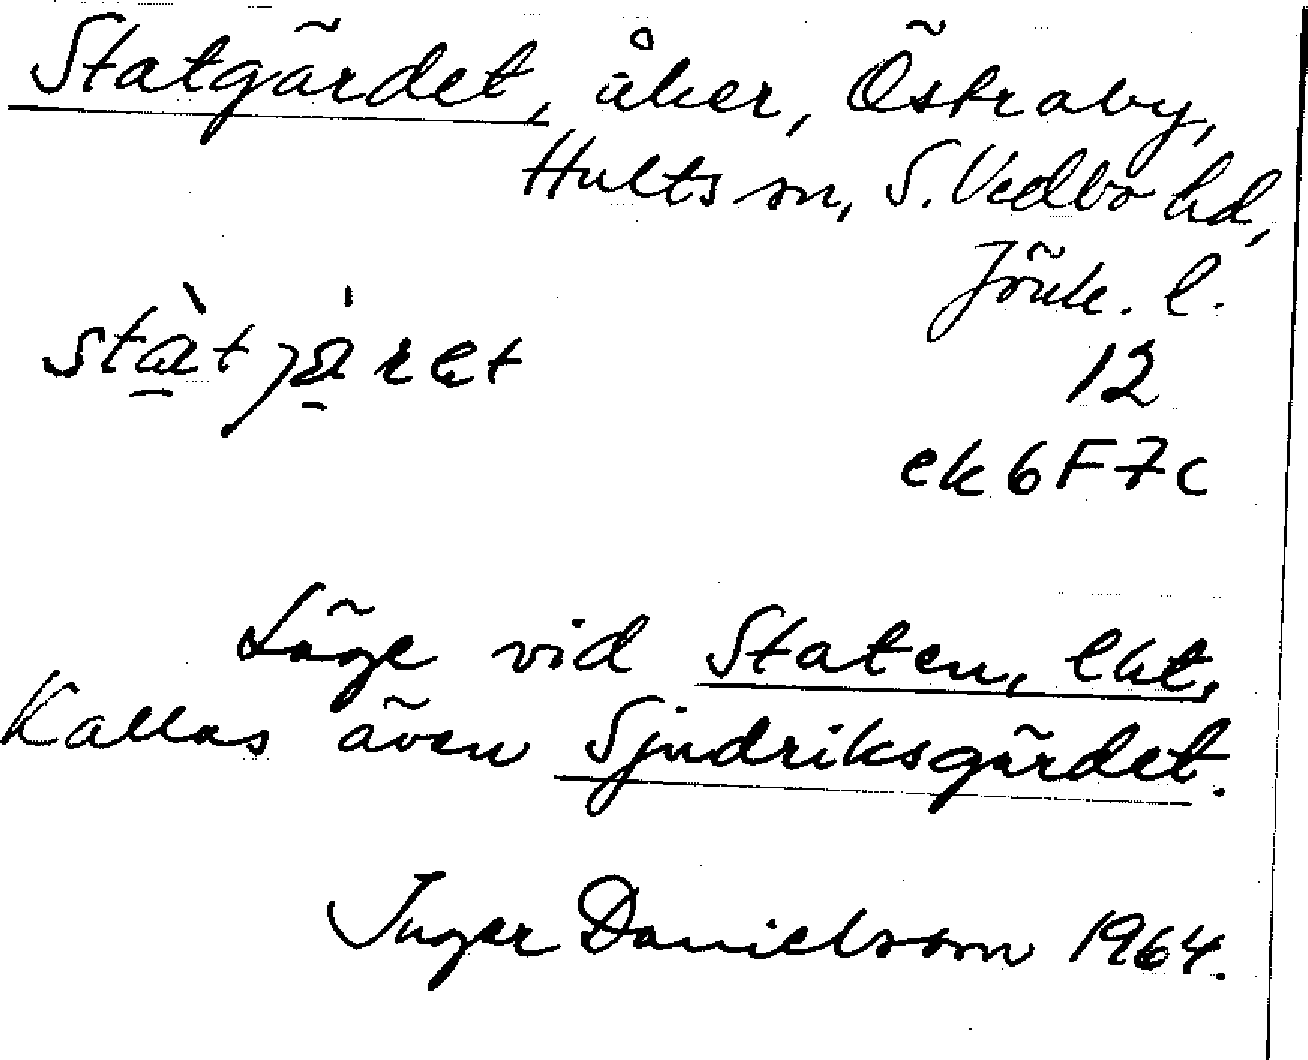 Statgärdet, åker, Östraby,
Hults sn, S. Vedbo hd,
Jönk. l.
12
ek 6F7c
Läge vid Staten, lht.
Kallas även Sjudriksgärdet.
Inger Danielsson 1964.